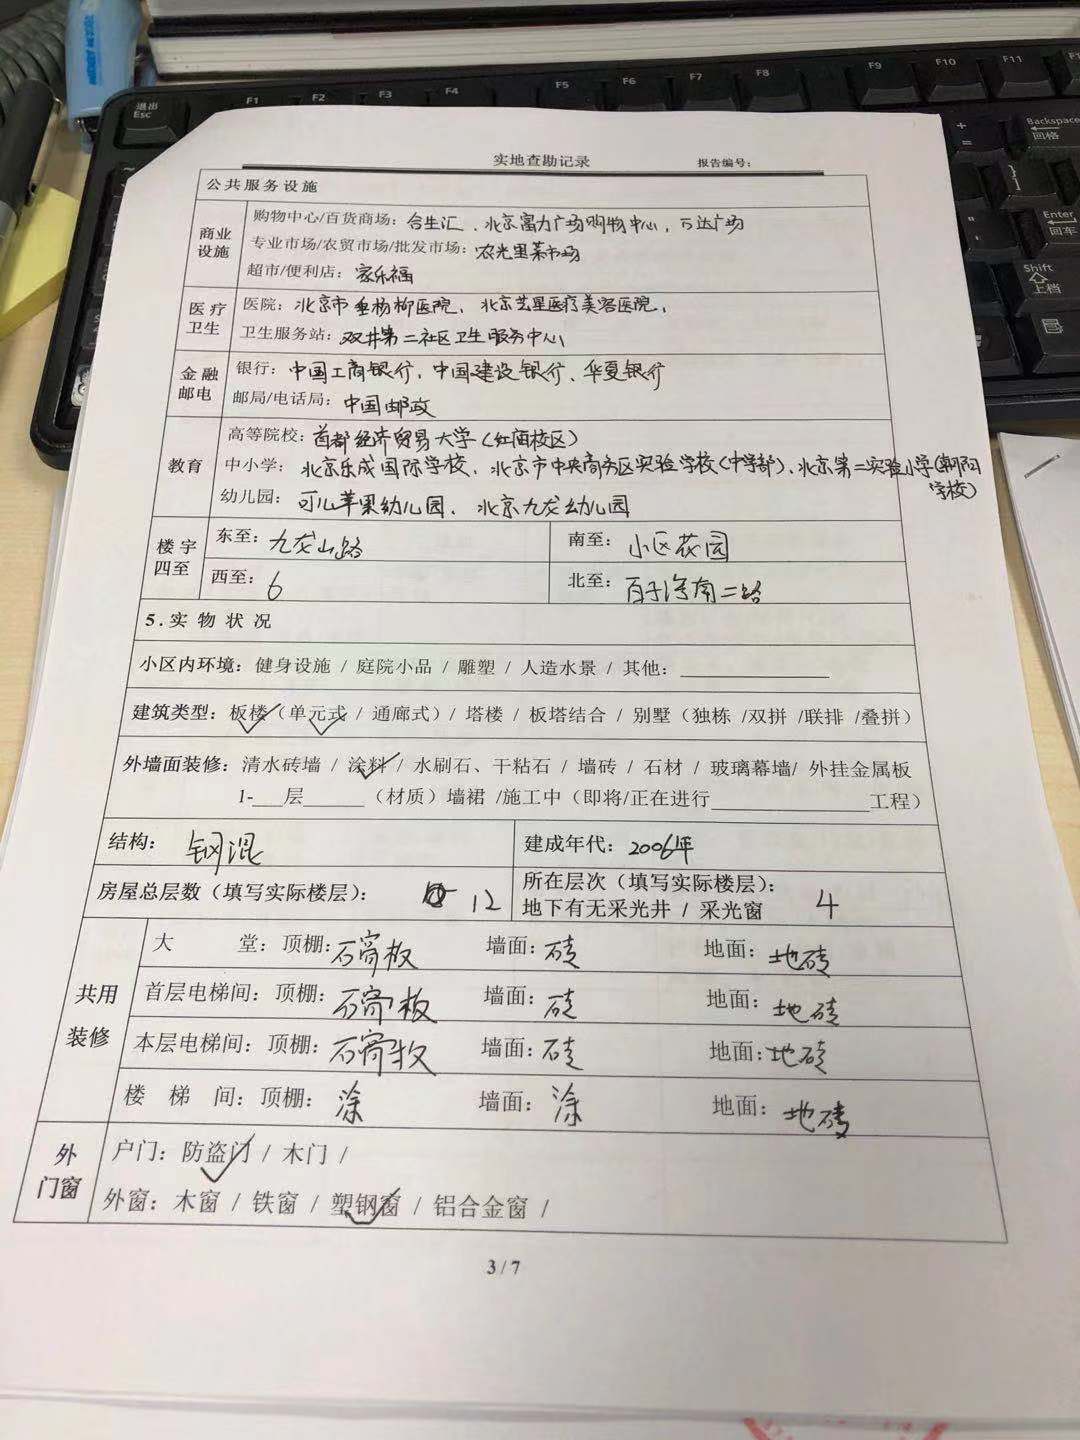 退出
Esc
F1
F2
F3
F4
F5
F6
F7
F8
F9
F10
F11
Backspace
回格
Enter
回车
Shift
上档
实地查勘记录
报告编号:
公共服务设施
商业设施
购物中心/百货商场: 合生汇、北京富力广场购物中心, 万达广场
专业市场/农贸市场/批发市场: 农光里菜市场
超市/便利店: 家乐福
医疗卫生
医院: 北京市垂杨柳医院, 北京艺星医疗美容医院,
卫生服务站: 双井第二社区卫生服务中心
金融邮电
银行: 中国工商银行, 中国建设银行、华夏银行
邮局/电话局: 中国邮政
教育
高等院校: 首都经济贸易大学(红庙校区)
中小学: 北京乐成国际学校、北京市中央商务区实验学校(中学部)、北京第二实验小学(朝阳
学校)
幼儿园: 可儿苹果幼儿园、北京九龙幼儿园
楼宇四至
东至: 九龙山路 南至: 小区花园
西至: 6 北至: 百子湾南二路
5.实物状况
小区内环境: 健身设施 / 庭院小品 / 雕塑 / 人造水景 / 其他:
建筑类型: 板楼(单元式 / 通廊式)/ 塔楼 / 板塔结合 / 别墅(独栋 /双拼 /联排 /叠拼)
外墙面装修: 清水砖墙 / 涂料 / 水刷石、干粘石 / 墙砖 / 石材 / 玻璃幕墙/ 外挂金属板
1-___层______(材质)墙裙 /施工中(即将/正在进行______________工程)
结构: 钢混 建成年代: 2006年
房屋总层数(填写实际楼层): 12
所在层次(填写实际楼层):
地下有无采光井 / 采光窗 4
共用装修
大堂: 顶棚: 石膏板 墙面: 砖 地面: 地砖
首层电梯间: 顶棚: 石膏板 墙面: 砖 地面: 地砖
本层电梯间: 顶棚: 石膏板 墙面: 砖 地面: 地砖
楼梯间: 顶棚: 涂 墙面: 涂 地面: 地砖
外门窗
户门: 防盗门 / 木门 /
外窗: 木窗 / 铁窗 / 塑钢窗 / 铝合金窗 /
3 / 7